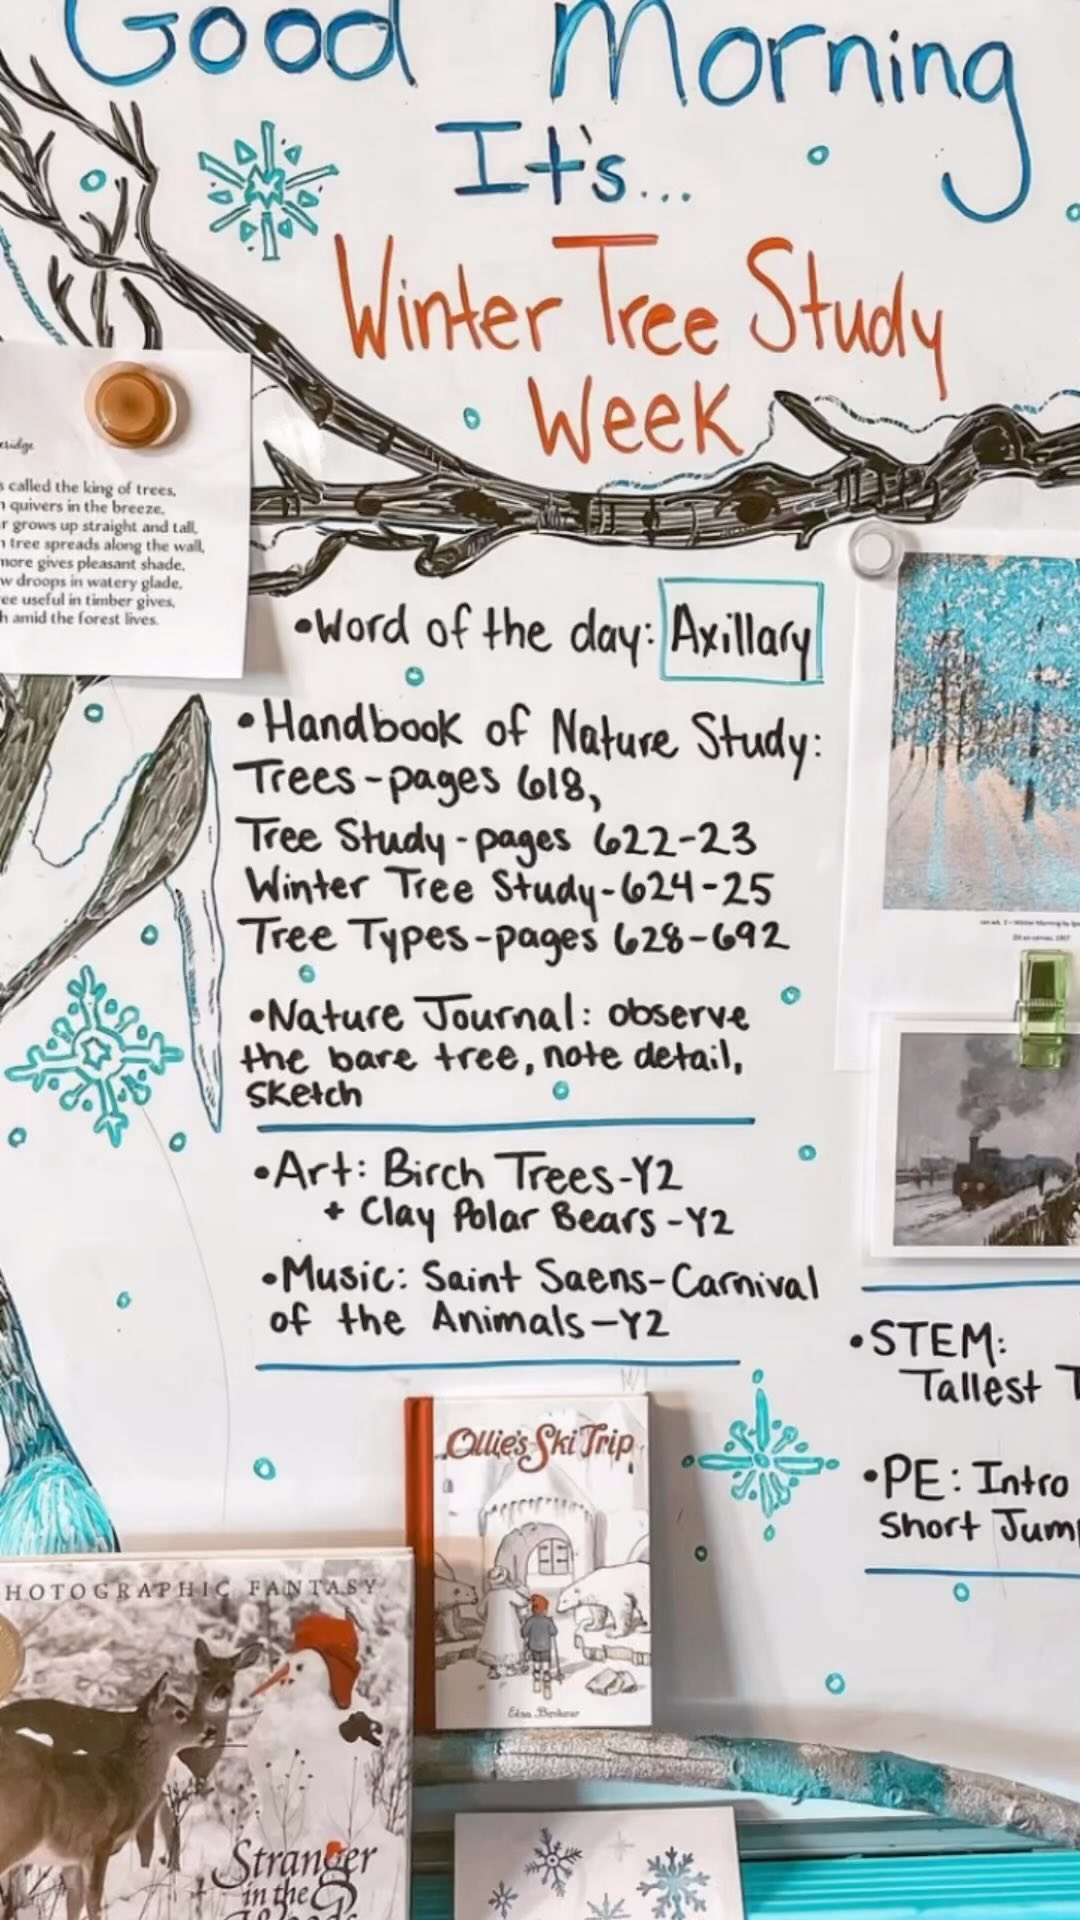 Good Morning
It's...
Winter Tree Study
Week
called the king of trees,
quivers in the breeze,
grows up straight and tall,
tree spreads along the wall,
gives pleasant shade,
droops in watery glade,
useful in timber gives,
amid the forest lives.
•Word of the day: Axillary
•Handbook of Nature Study:
Trees-pages 618,
Tree Study-pages 622-23
Winter Tree Study-624-25
Tree Types-pages 628-692
•Nature Journal: observe
the bare tree, note detail,
sketch
•Art: Birch Trees-Y2
+ Clay Polar Bears-Y2
•Music: Saint Saens-Carnival
of the Animals-Y2
•STEM:
Tallest T
•PE: Intro
Short Jum
Ollie's Ski Trip
Elsa Beskow
HOTOGRAPHIC FANTASY
Stranger
in the
Woods